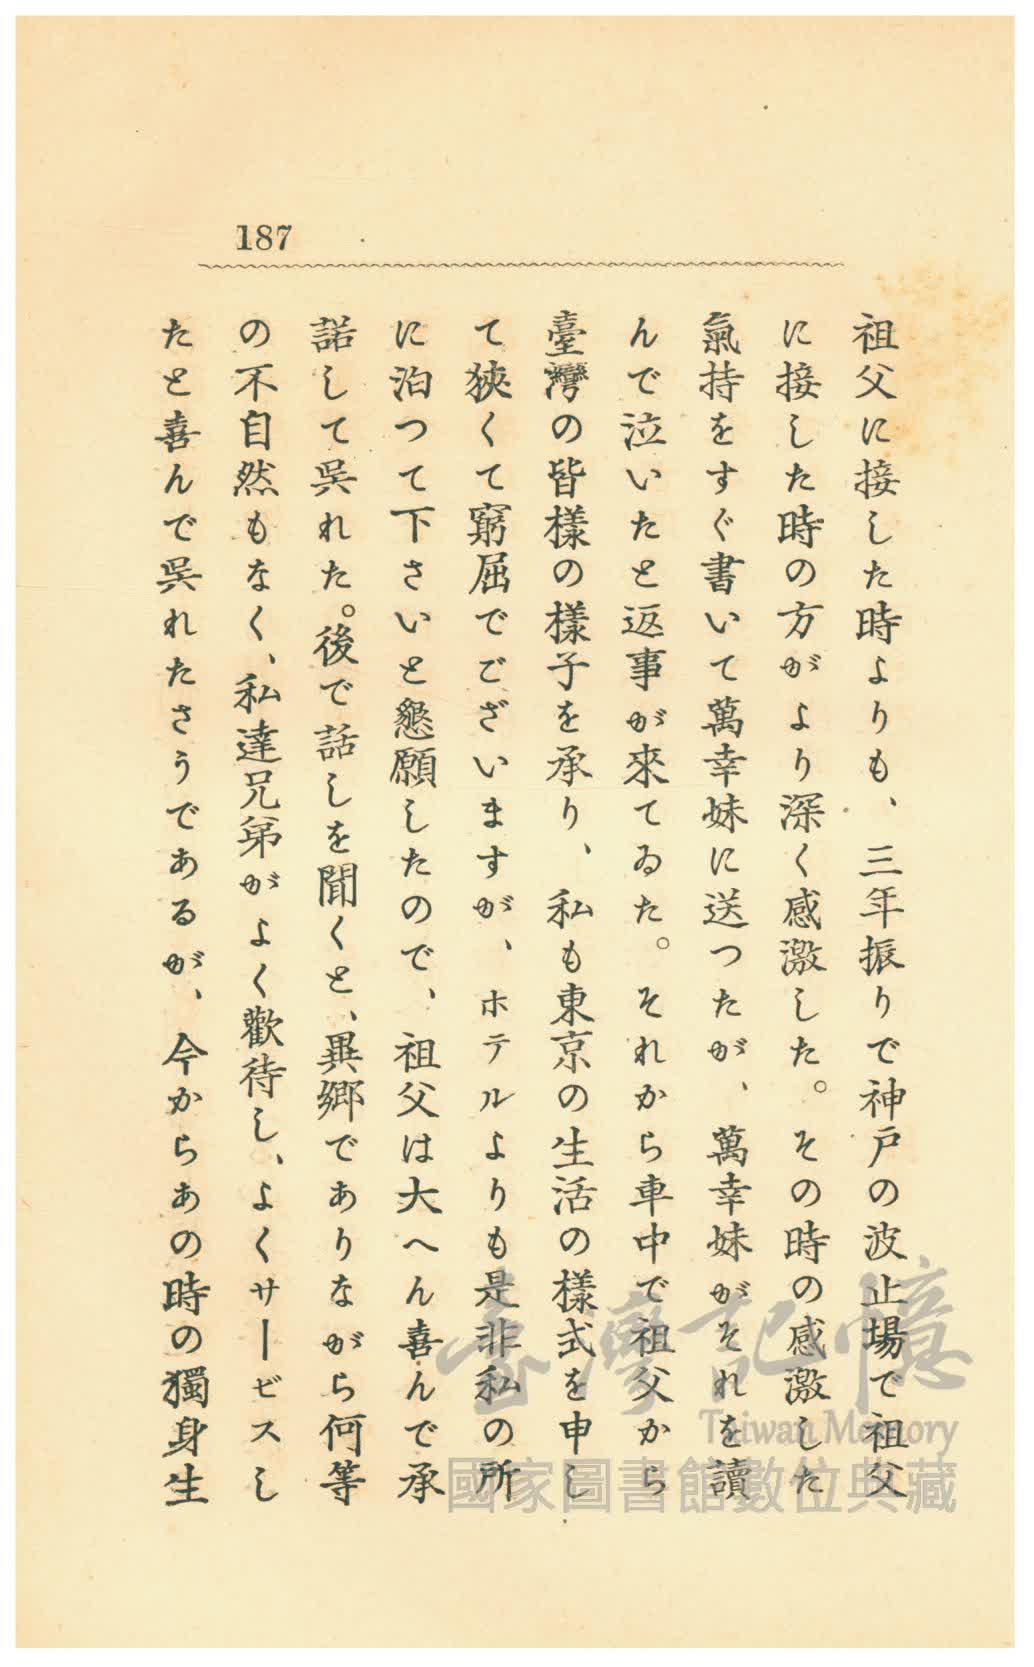 187
祖父に接した時よりも、三年振りで神戸の波止場で祖父
に接した時の方がより深く感激した。その時の感激した
氣持をすぐ書いて萬幸妹に送つたが、萬幸妹がそれを讀
んで泣いたと返事が來てゐた。それから車中で祖父から
臺灣の皆樣の樣子を承り、私も東京の生活の樣式を申し
て狹くて窮屈でございますが、ホテルよりも是非私の所
に泊つて下さいと懇願したので、祖父は大へん喜んで承
諾して呉れた。後で話しを聞くと、異郷でありながら何等
の不自然もなく、私達兄弟がよく歡待し、よくサービスし
たと喜んで呉れたさうであるが、今からあの時の獨身生
臺灣記憶
Taiwan Memory
國家圖書館數位典藏